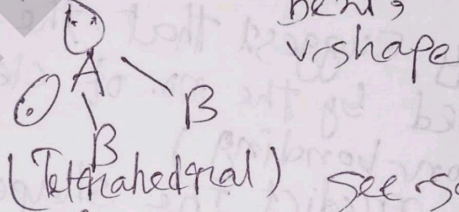 Bent,
V-shape
A
B
B
(Tetrahedral) see-s